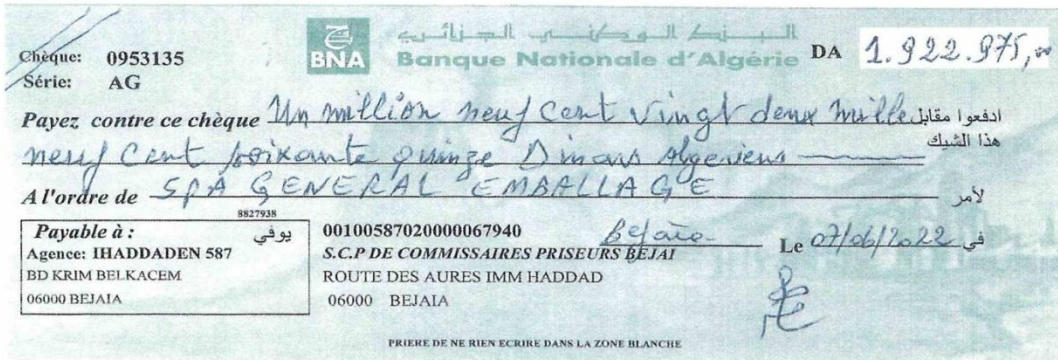 البنك الوطني الجزائري
BNA Banque Nationale d'Algérie DA 1.922.975,00
Chèque: 0953135
Série: AG
Payez contre ce chèque Un million neuf cent vingt deux mille ادفعوا مقابل
هذا الشيك
neuf cent soixante quinze Dinars Algeriens
A l'ordre de SPA GENERAL EMBALLAGE لأمر
8827938
Payable à : يوفي
Agence: IHADDADEN 587
BD KRIM BELKACEM
06000 BEJAIA
00100587020000067940
Bejaia Le 07/06/2022 في
S.C.P DE COMMISSAIRES PRISEURS BEJAI
ROUTE DES AURES IMM HADDAD
06000 BEJAIA
PRIERE DE NE RIEN ECRIRE DANS LA ZONE BLANCHE